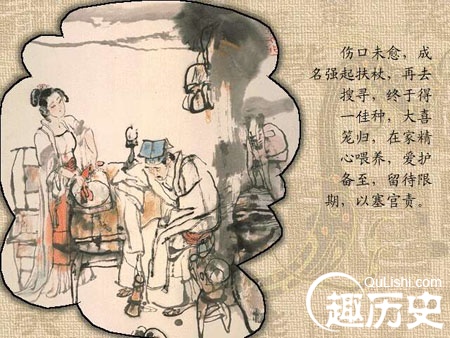 伤口未愈，成
名强起扶杖，再去
搜寻，终于得
一佳种，大喜
笼归，在家精
心喂养，爱护
备至，留待限
期，以塞官责。
QuLishi.com
趣历史